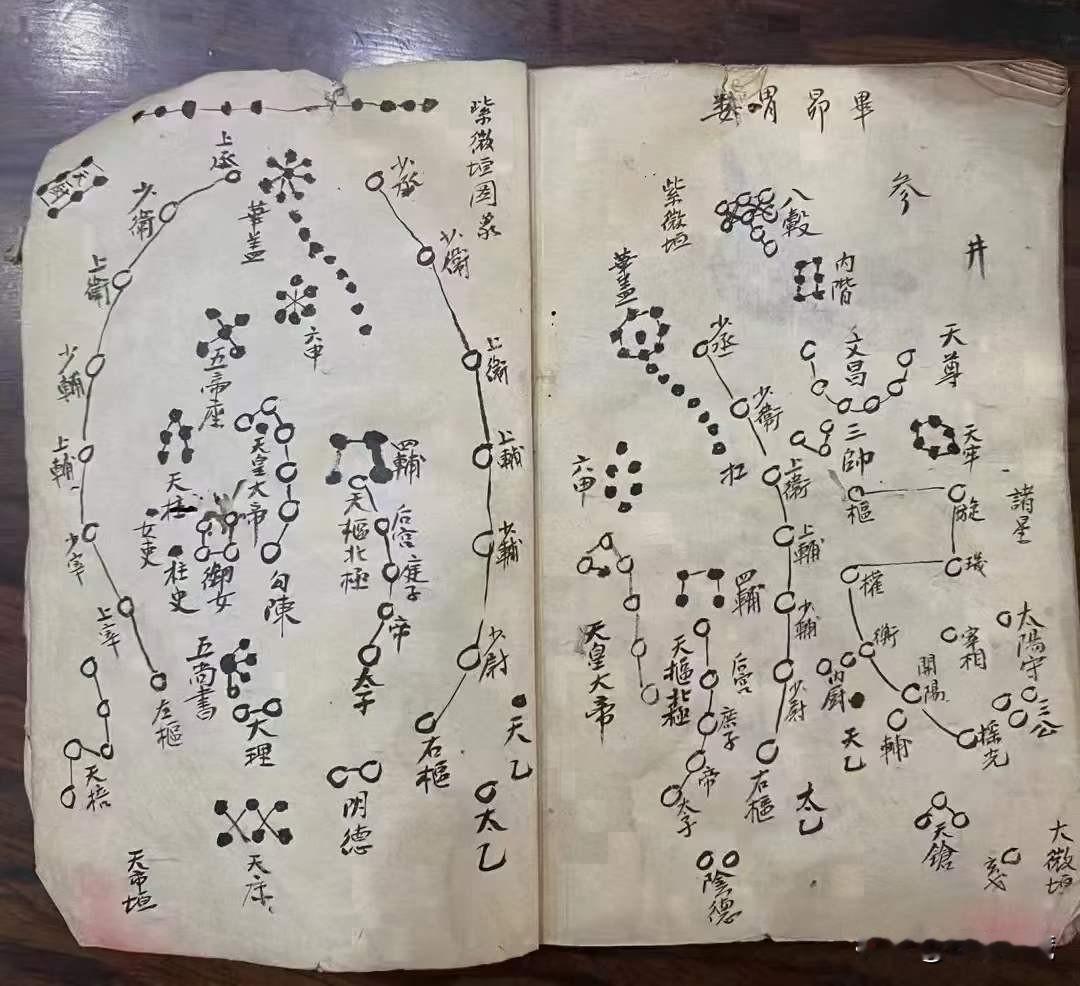 紫微垣图象
上丞
少丞
華盖
少衛
少衛
上衛
六甲
五帝座
上衛
少輔
天皇大帝
四輔
上輔
上輔
天柱
天樞北極
后宫
庶子
女史
柱史
御女
勾陳
少輔
少宰
帝
上宰
五尚書
太子
少尉
左樞
大理
右樞
天乙
天棓
阴德
太乙
天床
天市垣
婁胃昴畢
参
井
紫微垣
八穀
内階
華盖
少丞
文昌
天尊
少衛
三師
天牢
杠
六甲
上衛
樞
旋
諸星
上輔
璣
四輔
權
少輔
衡
宰相
太陽守
天皇大帝
天樞北極
后宫
庶子
少尉
内厨
開陽
三公
帝
天乙
輔
摇光
太子
右樞
太乙
天鎗
陰德
玄戈
太微垣